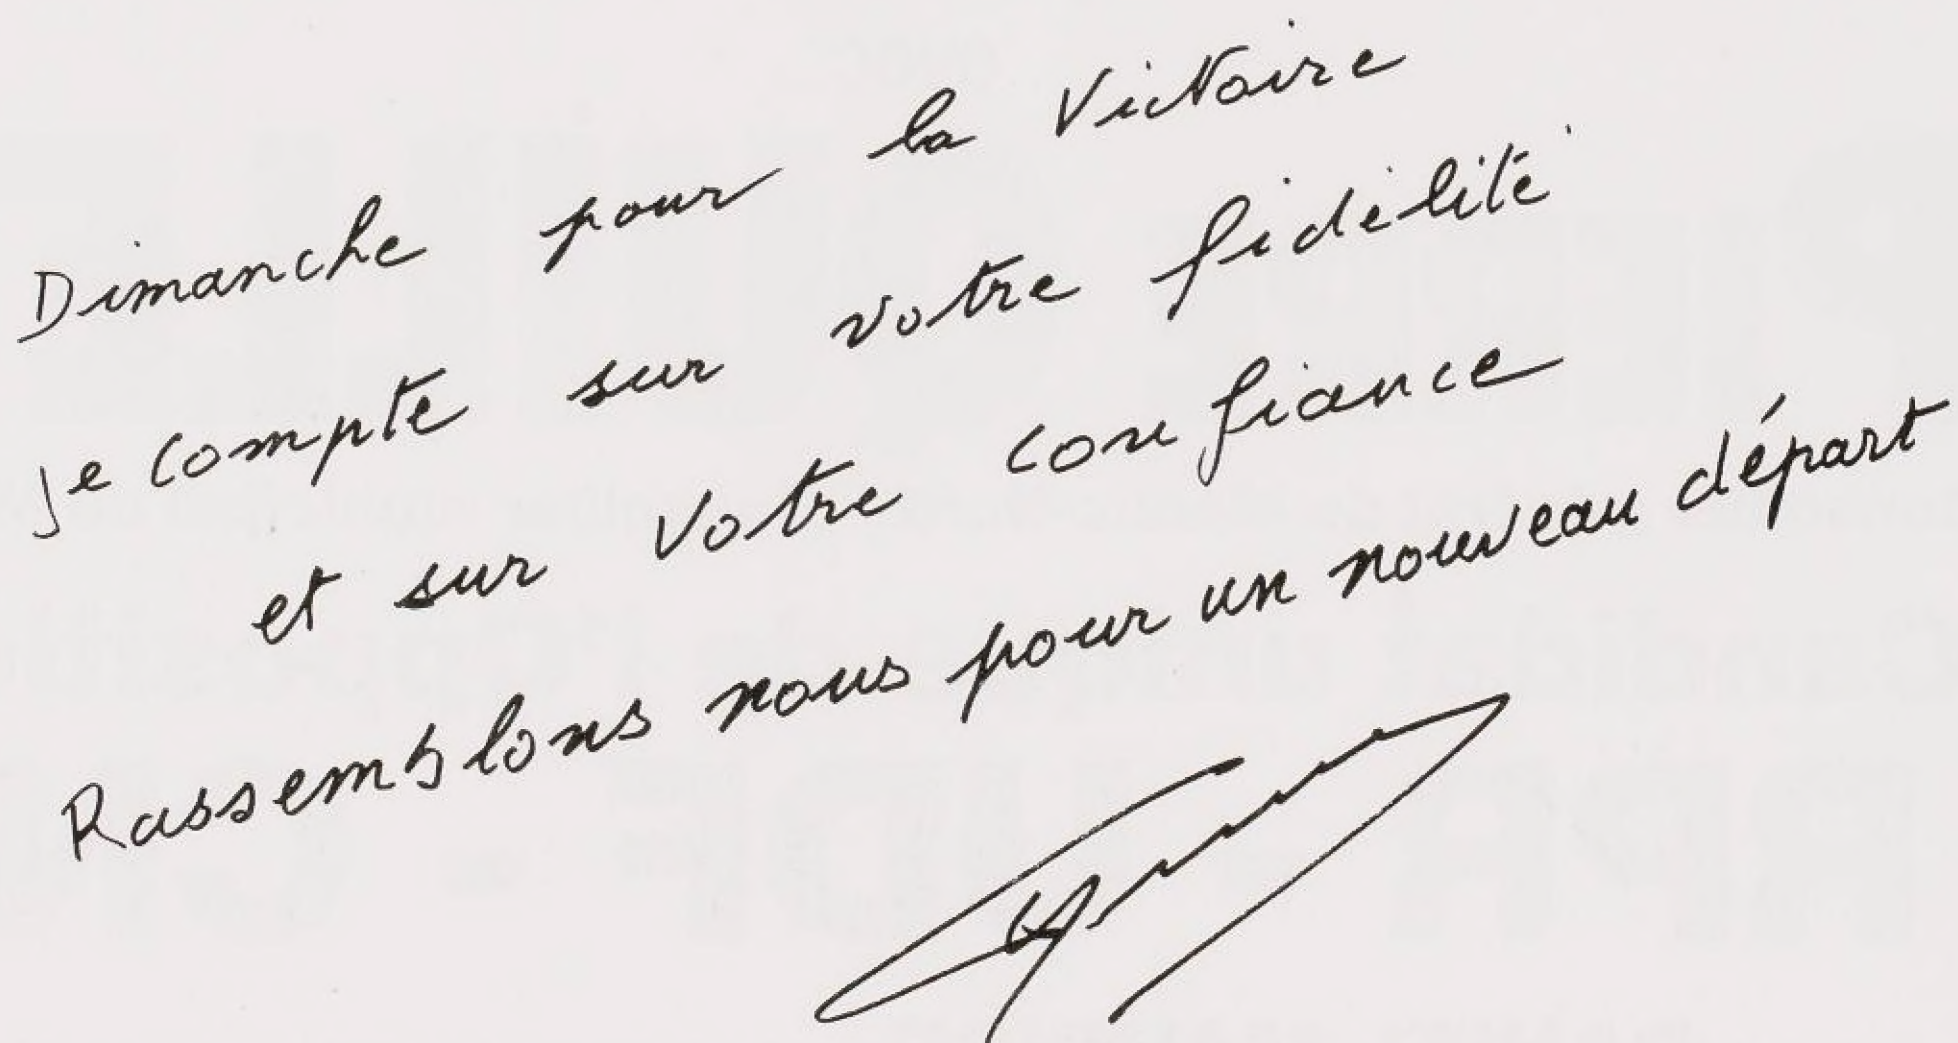 Dimanche pour la Victoire
je compte sur votre fidélité
et sur votre confiance
Rassemblons nous pour un nouveau départ